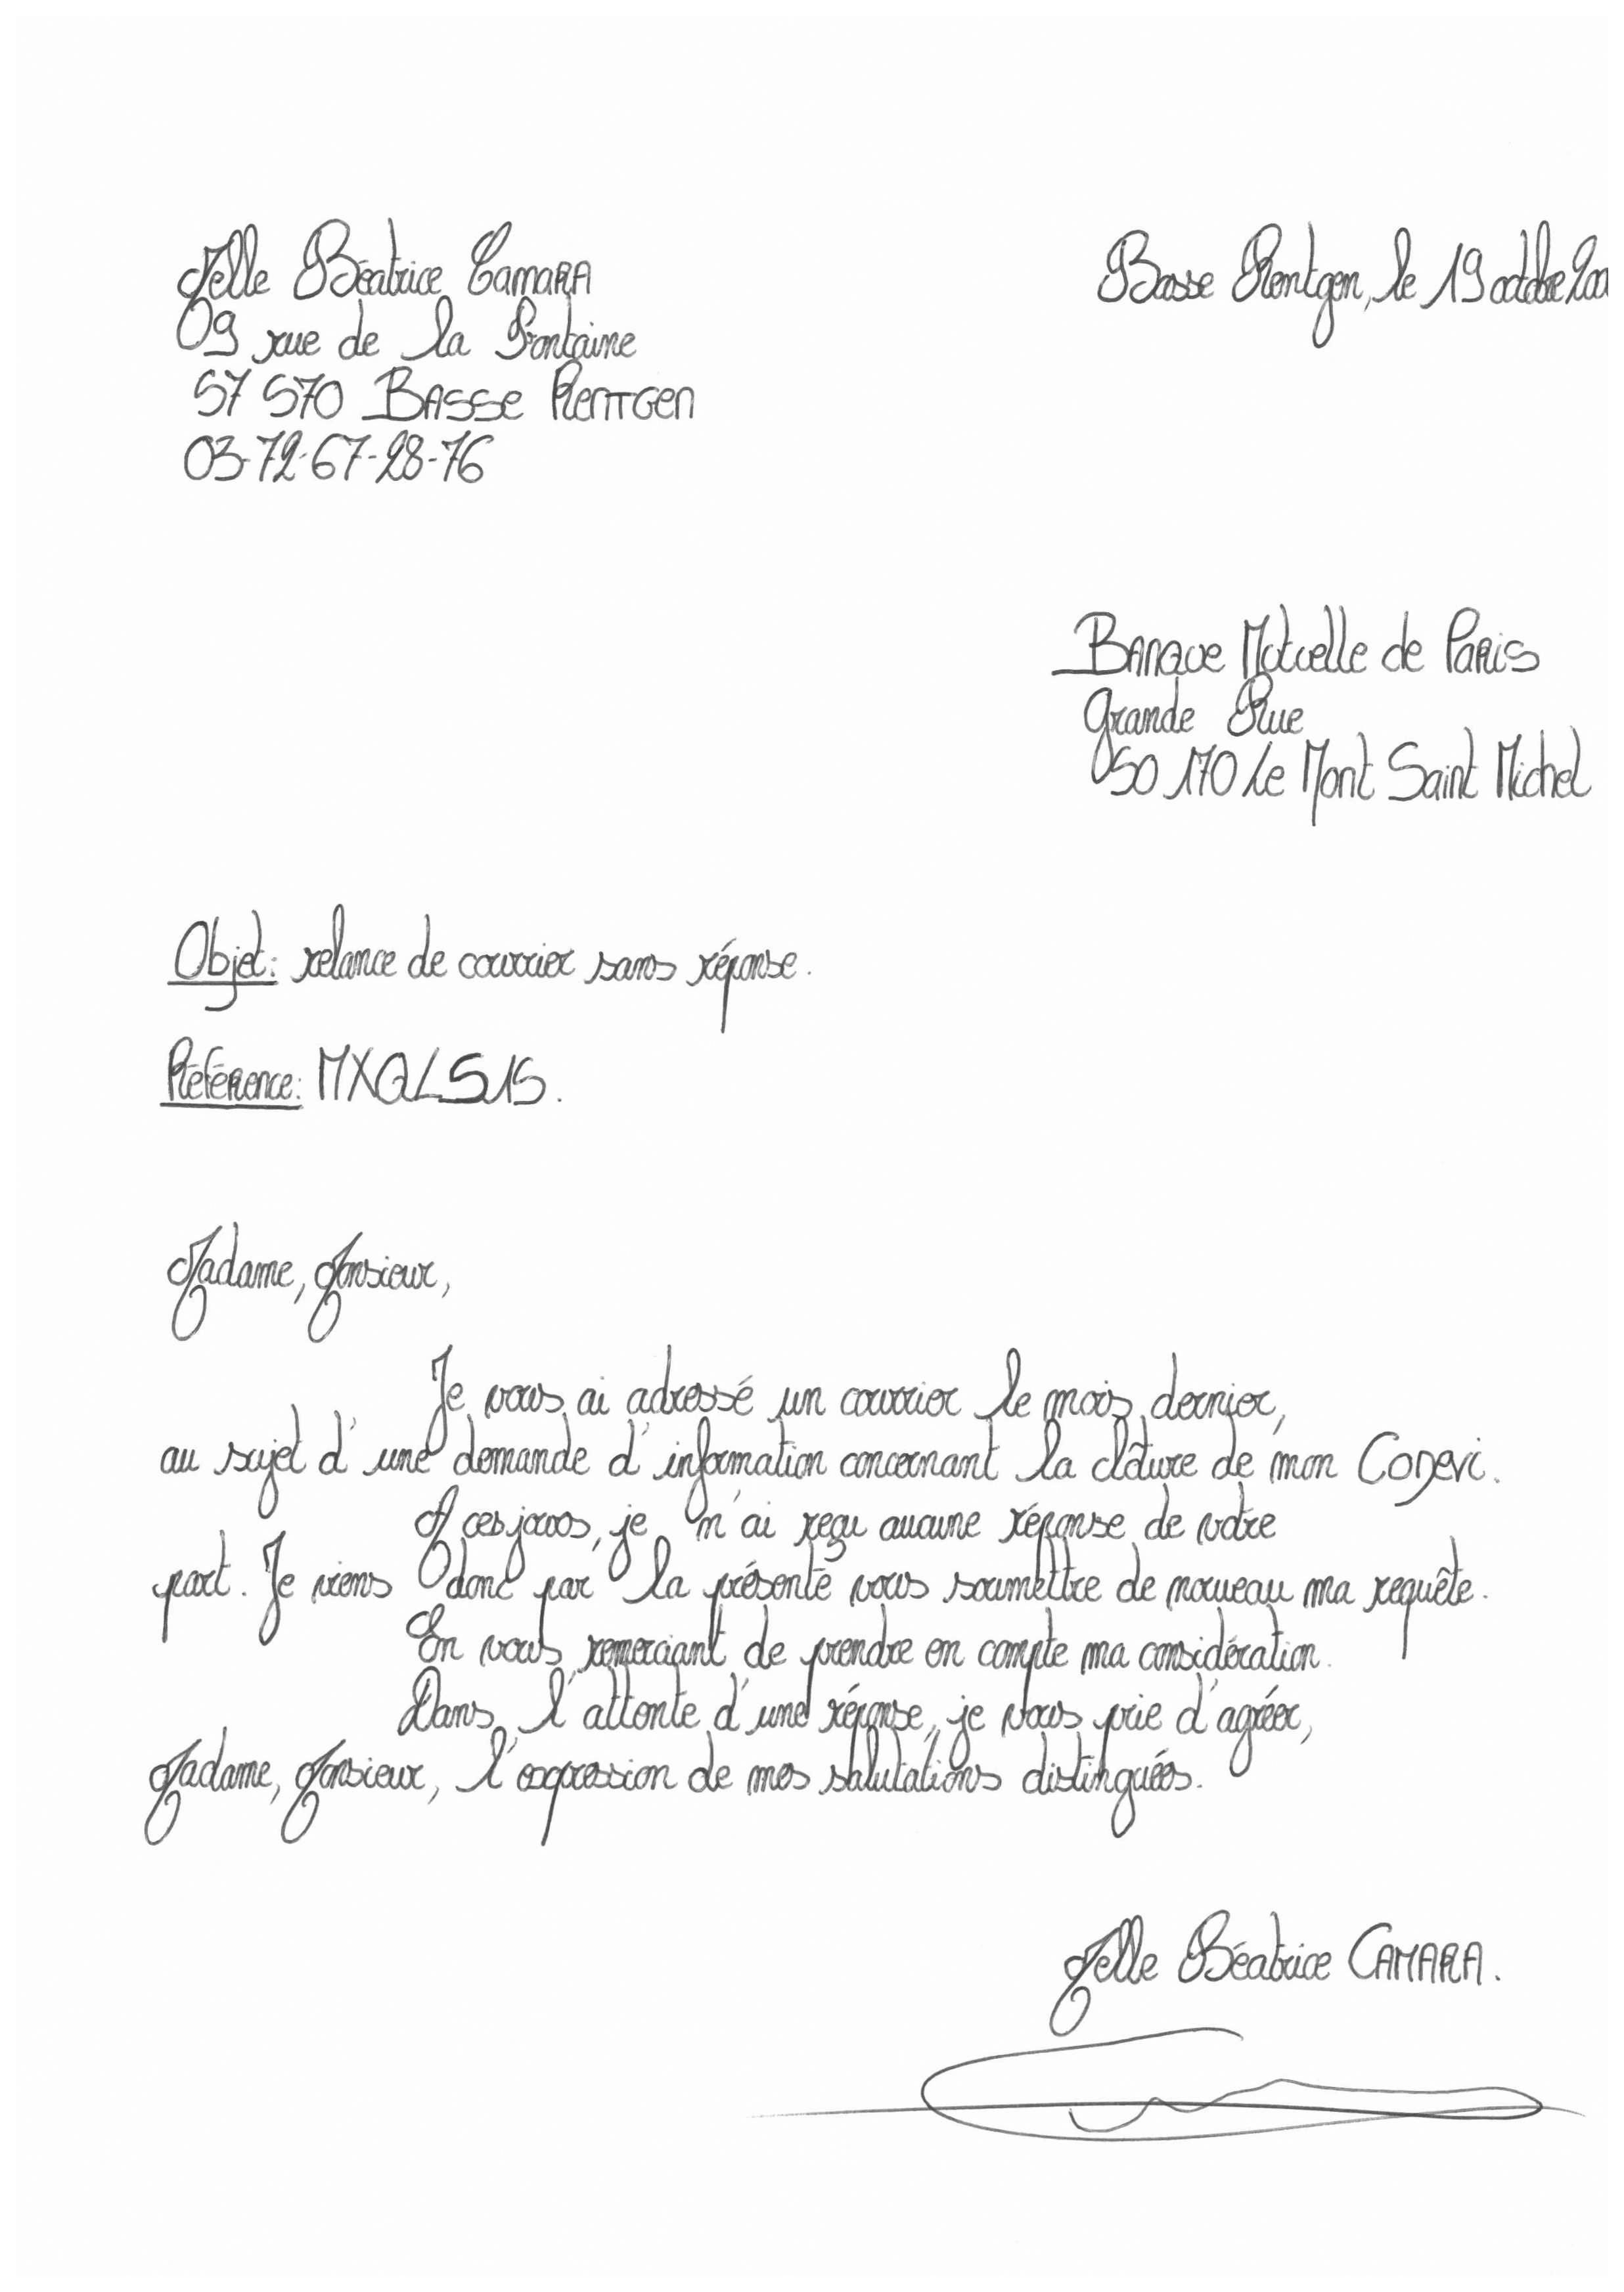 Melle Béatrice CamaRA
09 rue de la Fontaine
57 570 BASSE RentGen
03-72-67-28-76
Basse Rentgen, le 19 octobre
Banque Mutuelle de Paris
Grande Rue
50 170 Le Mont Saint Michel
Objet: relance de courrier sans réponse.
Référence: MXQLS15.
Madame, Monsieur,
Je vous ai adressé un courrier le mois dernier,
au sujet d'une demande d'information concernant la clôture de mon Codevi.
A ces jours, je n'ai reçu aucune réponse de votre
part. Je viens donc par la présente vous soumettre de nouveau ma requête.
En vous remerciant de prendre en compte ma considération.
Dans l'attente d'une réponse, je vous prie d'agréer,
Madame, Monsieur, l'expression de mes salutations distinguées.
Melle Béatrice CAMARA.